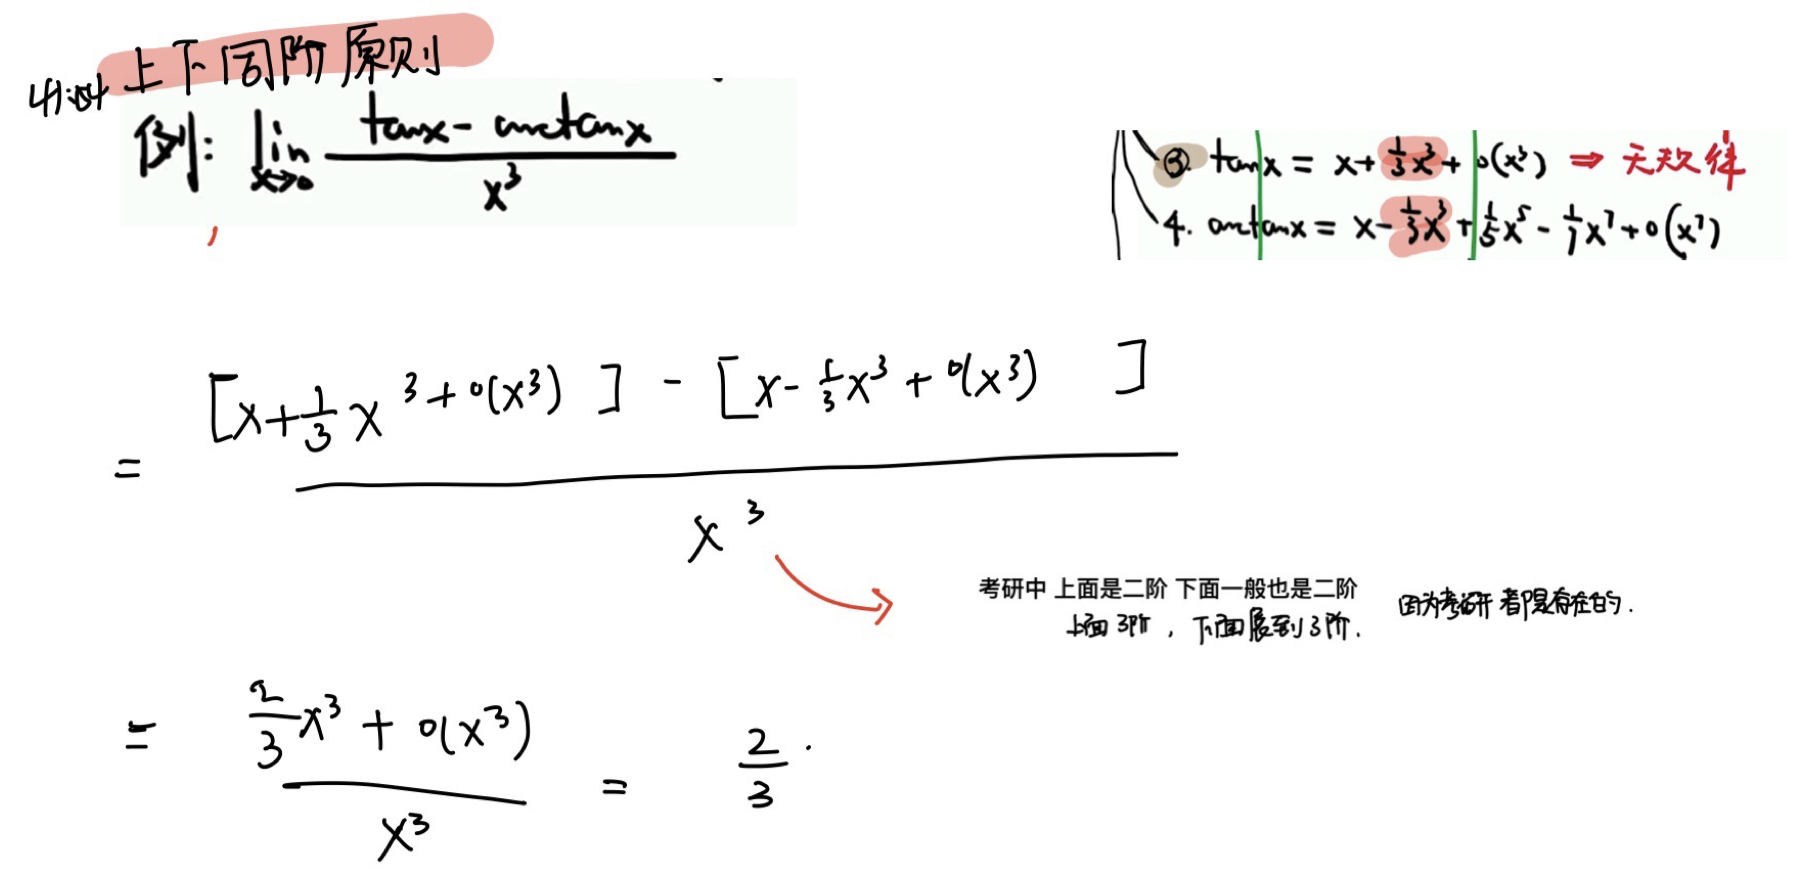 上下同阶原则
例: lim x→0 (tanx - arctanx) / x³
③. tanx = x + 1/3 x³ + o(x³) ⇒ 无规律
4. arctanx = x - 1/3 x³ + 1/5 x⁵ - 1/7 x⁷ + o(x⁷)
= [x + 1/3 x³ + o(x³)] - [x - 1/3 x³ + o(x³)] / x³
考研中 上面是二阶 下面一般也是二阶
因为考研都是存在的.
上面3阶, 下面展到3阶.
= (2/3 x³ + o(x³)) / x³ = 2/3.